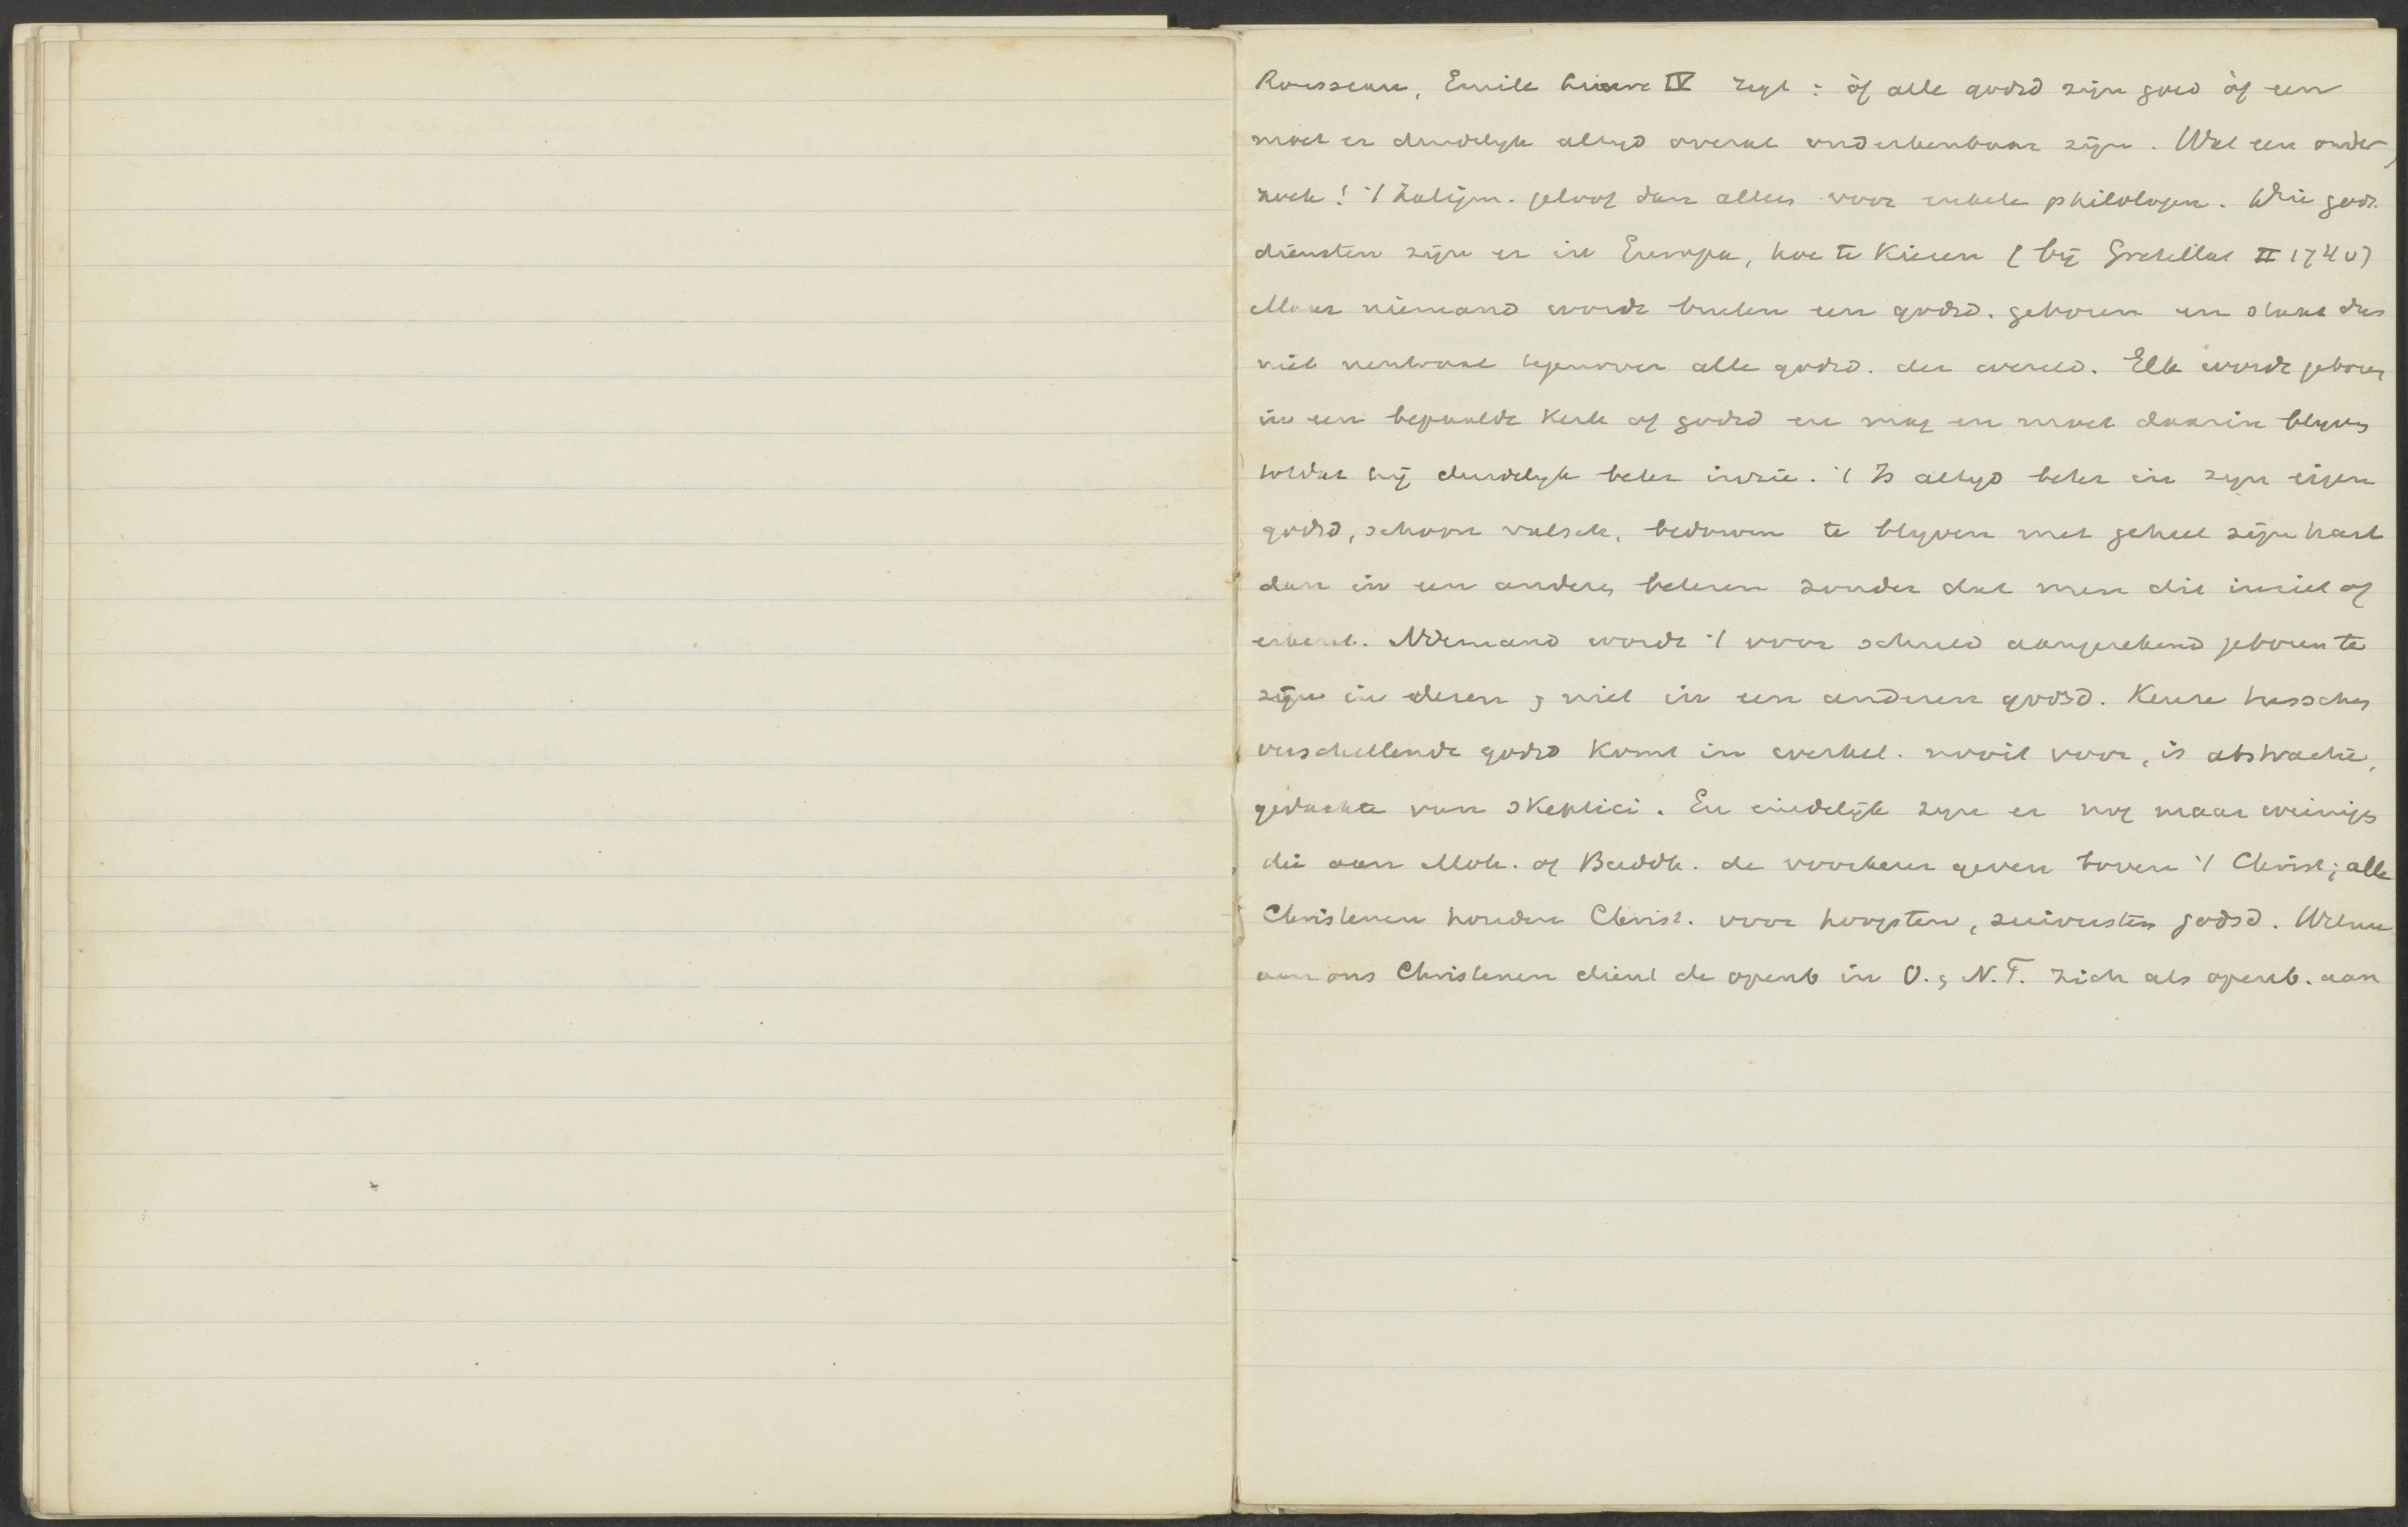 Rousseau, Emile livre IV zegt: òf alle godsd zijn goed òf een
moet er duidelyk altyd overal onderkenbaar zijn. Wat een onder
zoek! 't Zaligm. geloof dan alleen voor enkele philologen. Drie gods
diensten zijn er in Europa, hoe te kiezen (bij Gretillat II 174 v)
Maar niemand wordt buiten een godsd. geboren en staat dus
niet neutraal tegenover alle godsd. der wereld. Elk wordt geboren
in een bepaalde kerk of godsd en mag en moet daarin blyven
totdat hij duidelyk beter inzie. 't Is altyd beter in zyn eigen
godsd, schoon valsch, bedorven te blyven met geheel zijn hart
dan in een andere, beteren zonder dat men dit inziet of
erkent. Niemand wordt 't voor schuld aangerekend geboren te
zijn in dezen, niet in een anderen godsd. Keuze tusschen
verschillende godsd komt in werkel. nooit voor, is abstractie,
gedachte van skeptici. En eindelijk zyn er nog maar weinigen
die aan Moh. of Buddh. de voorkeur geven boven 't Christ; alle
Christenen houden Christ. voor hoogsten, zuiversten godsd. Welnu
aan ons Christenen dient de openb in O. , N.T. zich als openb. aan